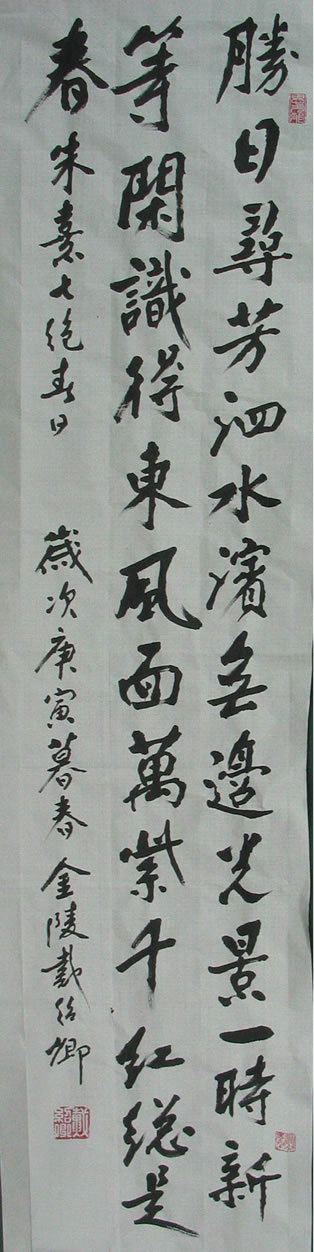 勝日尋芳泗水濱無邊光景一時新
等閑識得東風面萬紫千紅總是
春朱熹七絕春日 歲次庚寅暮春金陵戴紹卿